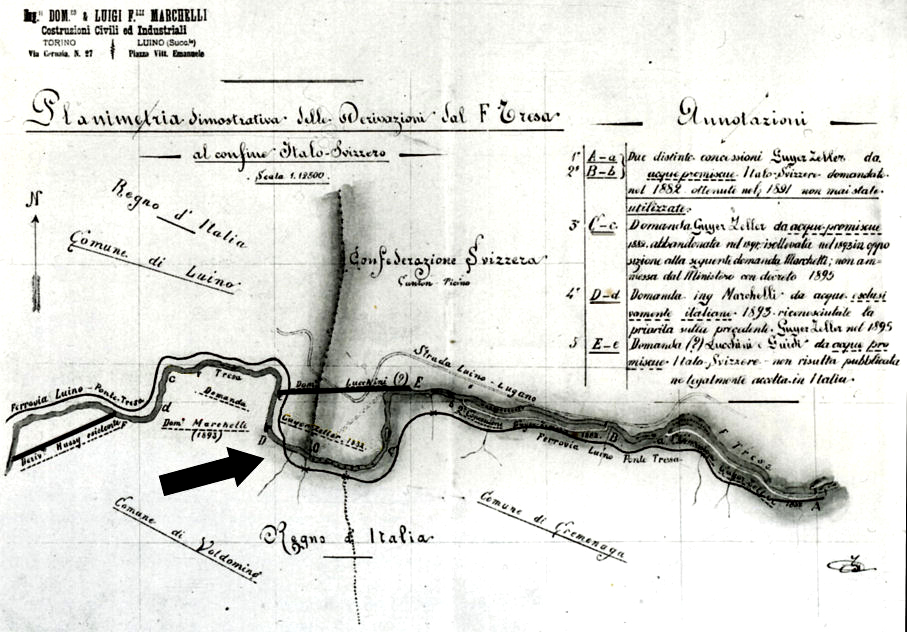 Ing.ri DOM.co & LUIGI F.lli MARCHELLI
Costruzioni Civili ed Industriali
TORINO
Via Cernaia, N. 27
LUINO (Succ.le)
Piazza Vitt. Emanuele
Planimetria dimostrativa delle Derivazioni dal F Tresa
al confine Italo-Svizzero
Scala 1:12500
Annotazioni
1° A-a
2° B-b
Due distinte concessioni Guyer Zeller da
acque promiscue Italo-Svizzere domandate
nel 1882 ottenute nel 1891 non mai state
utilizzate.
3° C-c Domanda Guyer Zeller da acque promiscue
1882. abbandonata nel oppo
sizione alla seguente domanda Marchelli; non am-
messa dal Ministero con decreto 1895
4° D-d Domanda ing Marchelli da acque esclusi
vamente italiane 1893. riconosciutale la
priorità sulla precedente Guyer Zeller nel 1895
5 E-e Domanda (?) Lucchini e Guidi da acque pro
miscue Italo-Svizzere - non risulta pubblicata
ne legalmente accolta in Italia.
N
Regno d'Italia
Comune di Luino
Confederazione Svizzera
Canton Ticino
Strada Luino-Lugano
Ferrovia Luino-Ponte-Tresa
Tresa
c
d
Domanda
Dom.a Marchelli
(1893)
Dom.a Lucchini (?) E
Guyer Zeller 1882
D
C
Deriv. Hussy esistente
B
a
F Tresa
Ferrovia Luino Ponte Tresa
Guyer Zeller 1882
A
Comune di Voldomino
Regno d'Italia
Comune di Cremenaga